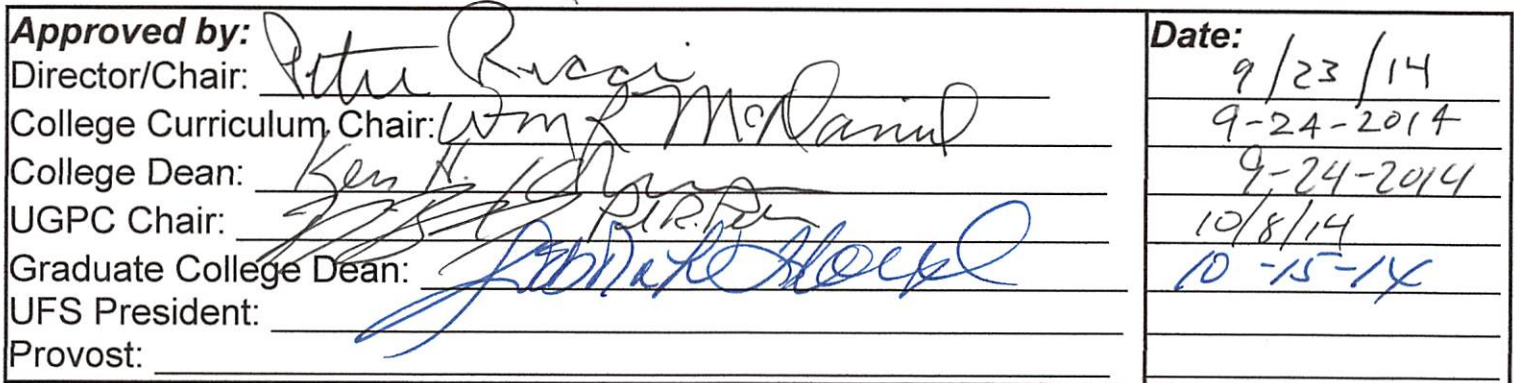 Approved by: Date:
Director/Chair: Peter Ricci 9/23/14
College Curriculum Chair: Wm R McDaniel 9-24-2014
College Dean: Ken H. 9-24-2014
UGPC Chair: 10/8/14
Graduate College Dean: 10-15-14
UFS President:
Provost: